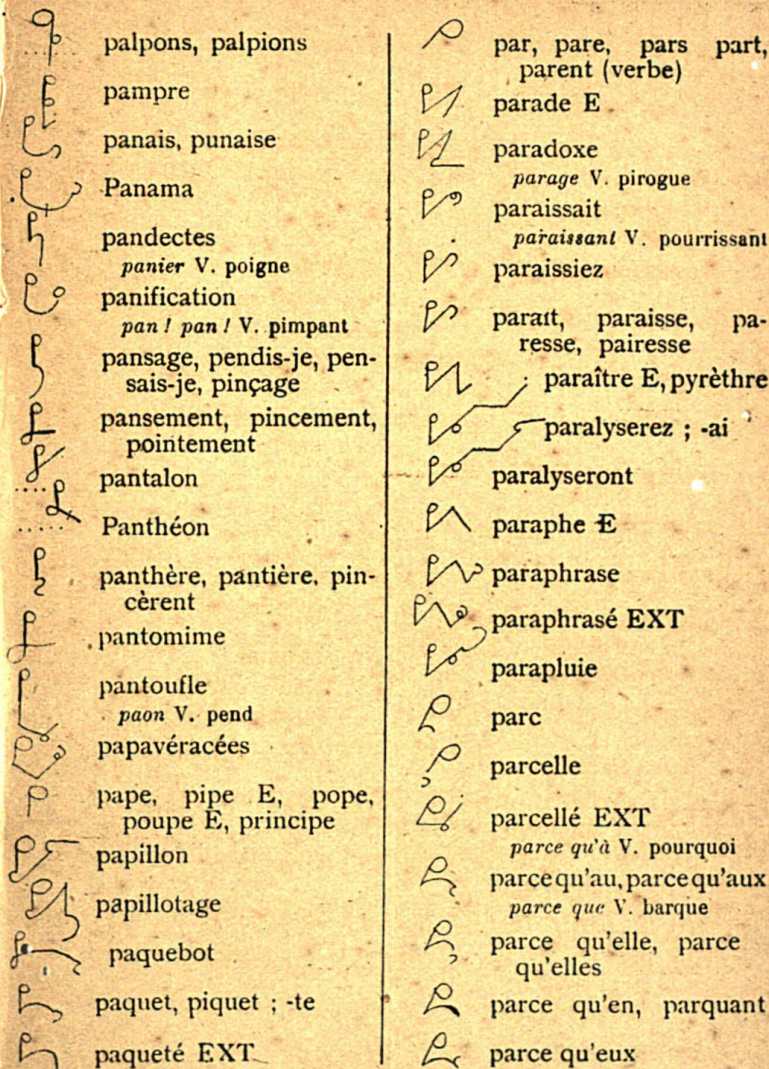 palpons, palpions
pampre
panais, punaise
Panama
pandectes
panier V. poigne
panification
pan ! pan ! V. pimpant
pansage, pendis-je, pen-
sais-je, pinçage
pansement, pincement,
pointement
pantalon
Panthéon
panthère, pantière, pin-
cèrent
pantomime
pantoufle
paon V. pend
papavéracées
pape, pipe E, pope,
poupe E, principe
papillon
papillotage
paquebot
paquet, piquet ; -te
paqueté EXT
par, pare, pars part,
parent (verbe)
parade E
paradoxe
parage V. pirogue
paraissait
paraissant V. pourrissant
paraissiez
paraît, paraisse, pa-
resse, pairesse
paraître E, pyrèthre
paralyserez ; -ai
paralyseront
paraphe E
paraphrase
paraphrasé EXT
parapluie
parc
parcelle
parcellé EXT
parce qu'à V. pourquoi
parce qu'au, parce qu'aux
parce que V. barque
parce qu'elle, parce
qu'elles
parce qu'en, parquant
parce qu'eux